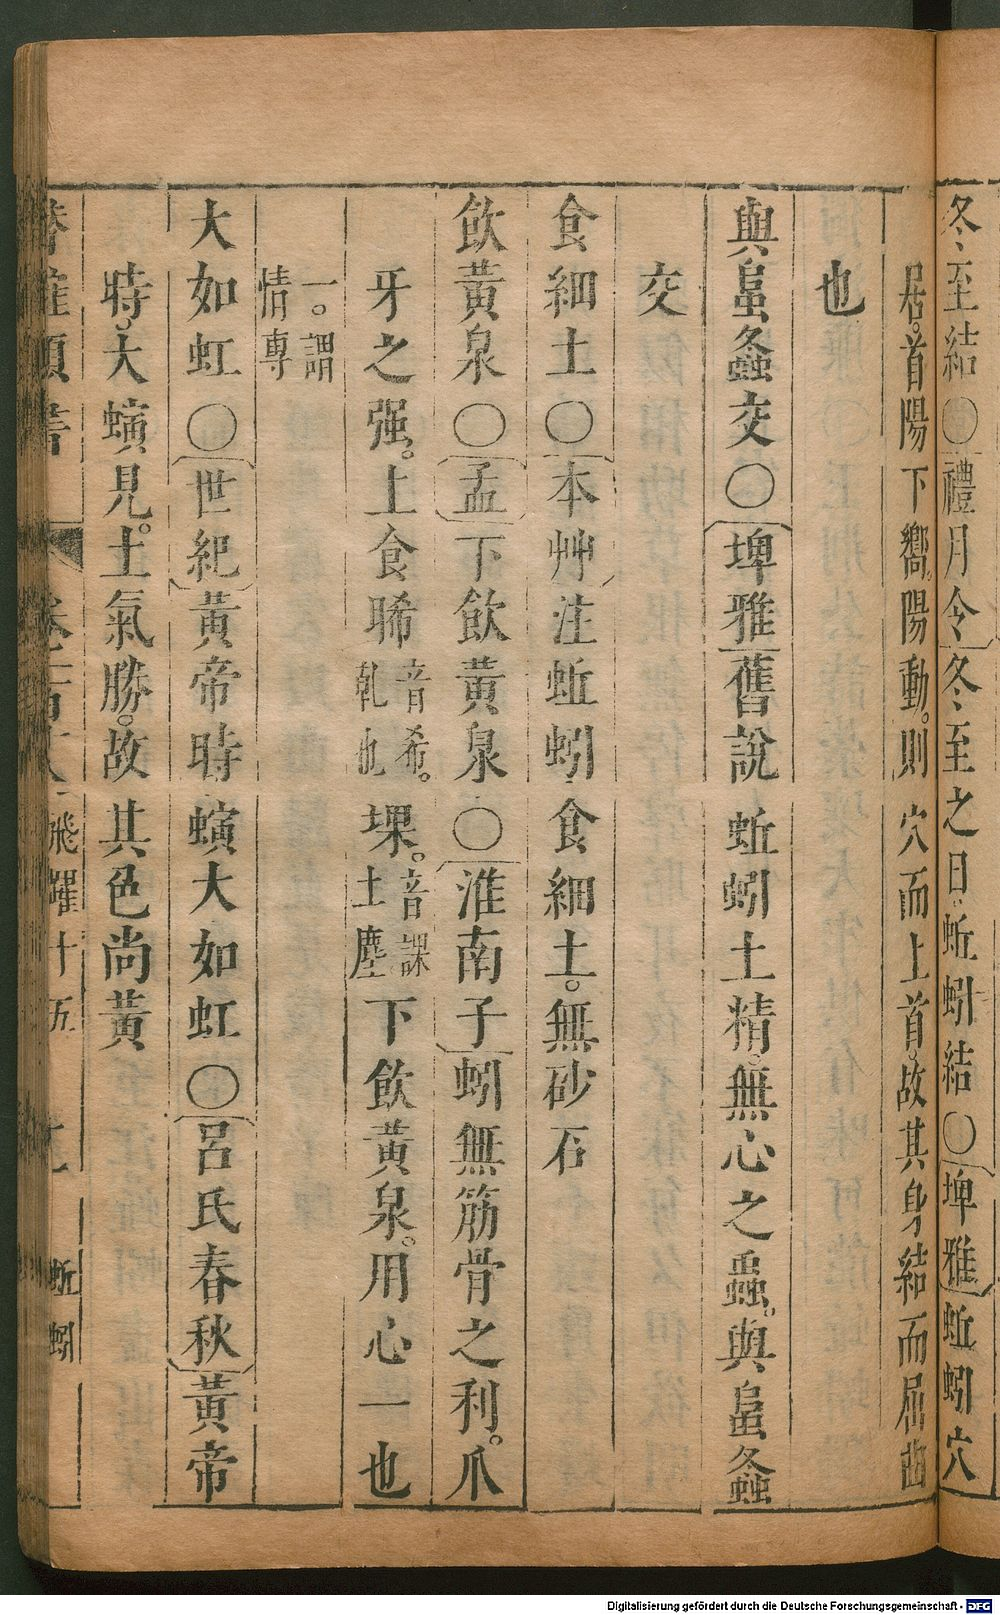 冬至結○禮月令冬至之日蚯蚓結○埤雅蚯蚓穴
居。首陽下嚮。陽動。則穴而上首。故其身結而屈曲
也
與𧒒螽交○埤雅舊說蚯蚓土精。無心之蟲。與𧒒螽
交
食細土○本艸注蚯蚓食細土。無砂石
飲黃泉○孟下飲黃泉○淮南子蚓無筋骨之利。爪
牙之强。上食晞音希。乾也堁。音課土塵下飲黃泉。用心一也
一。謂情專
大如虹○世紀黃帝時螾大如虹○呂氏春秋黃帝
時。大螾見。土氣勝。故其色尚黃
飛躍十五 蚯蚓
Digitalisierung gefördert durch die Deutsche Forschungsgemeinschaft - DFG